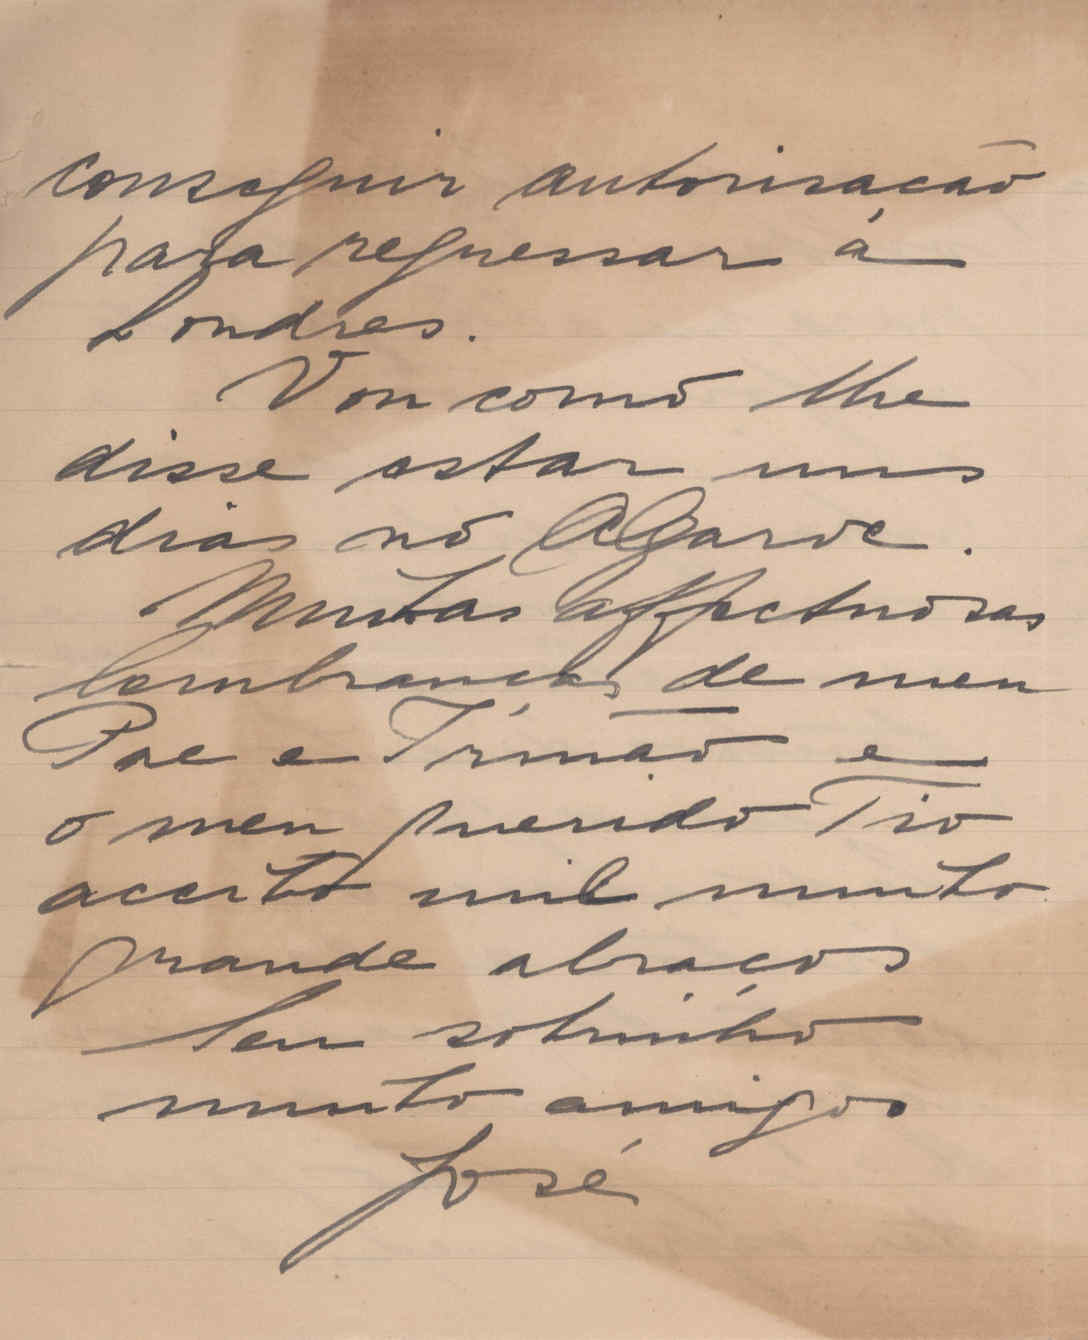 conseguir autorisacão
para regressar á
Londres.
Vou como lhe
disse estar uns
dias no Algarve.
Muitas affectuosas
lembranças de meu
Pae e Irmão e
o meu querido Tio
aceite mil muito
grande abraços
Seu sobrinho
muito amigo
José